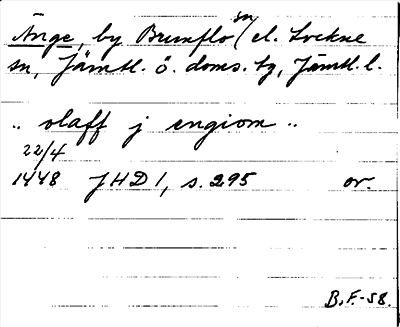 Änge, by Brunflo sn (el. Lockne
sn, Jämtl. ö. doms. tg, Jämtl. l.
„ olaff j engiom „
22/4
1448 JHD 1, s. 295 or.
B.F.-58.